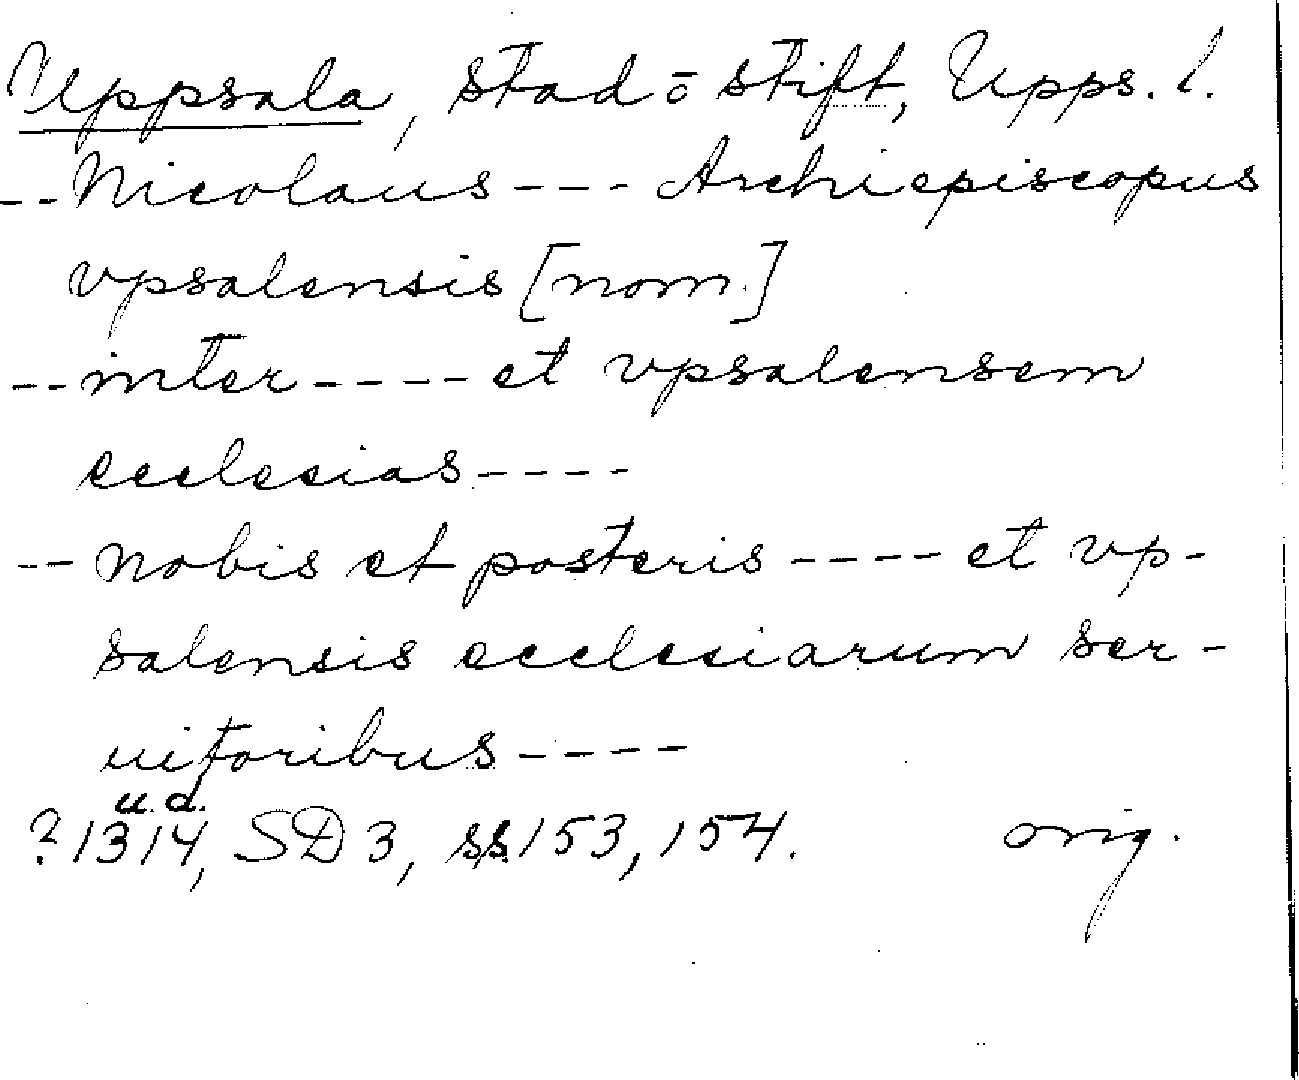 Uppsala, stad o stift, Upps. l.
-- Nicolaus --- Archiepiscopus
vpsalensis [nom.]
-- inter ----- et vpsalensem
ecclesias ----
-- nobis et posteris ---- et vp-
salensis ecclesiarum ser-
uitoribus ----
u. d.
? 1314, SD 3, ss. 153, 154. orig.